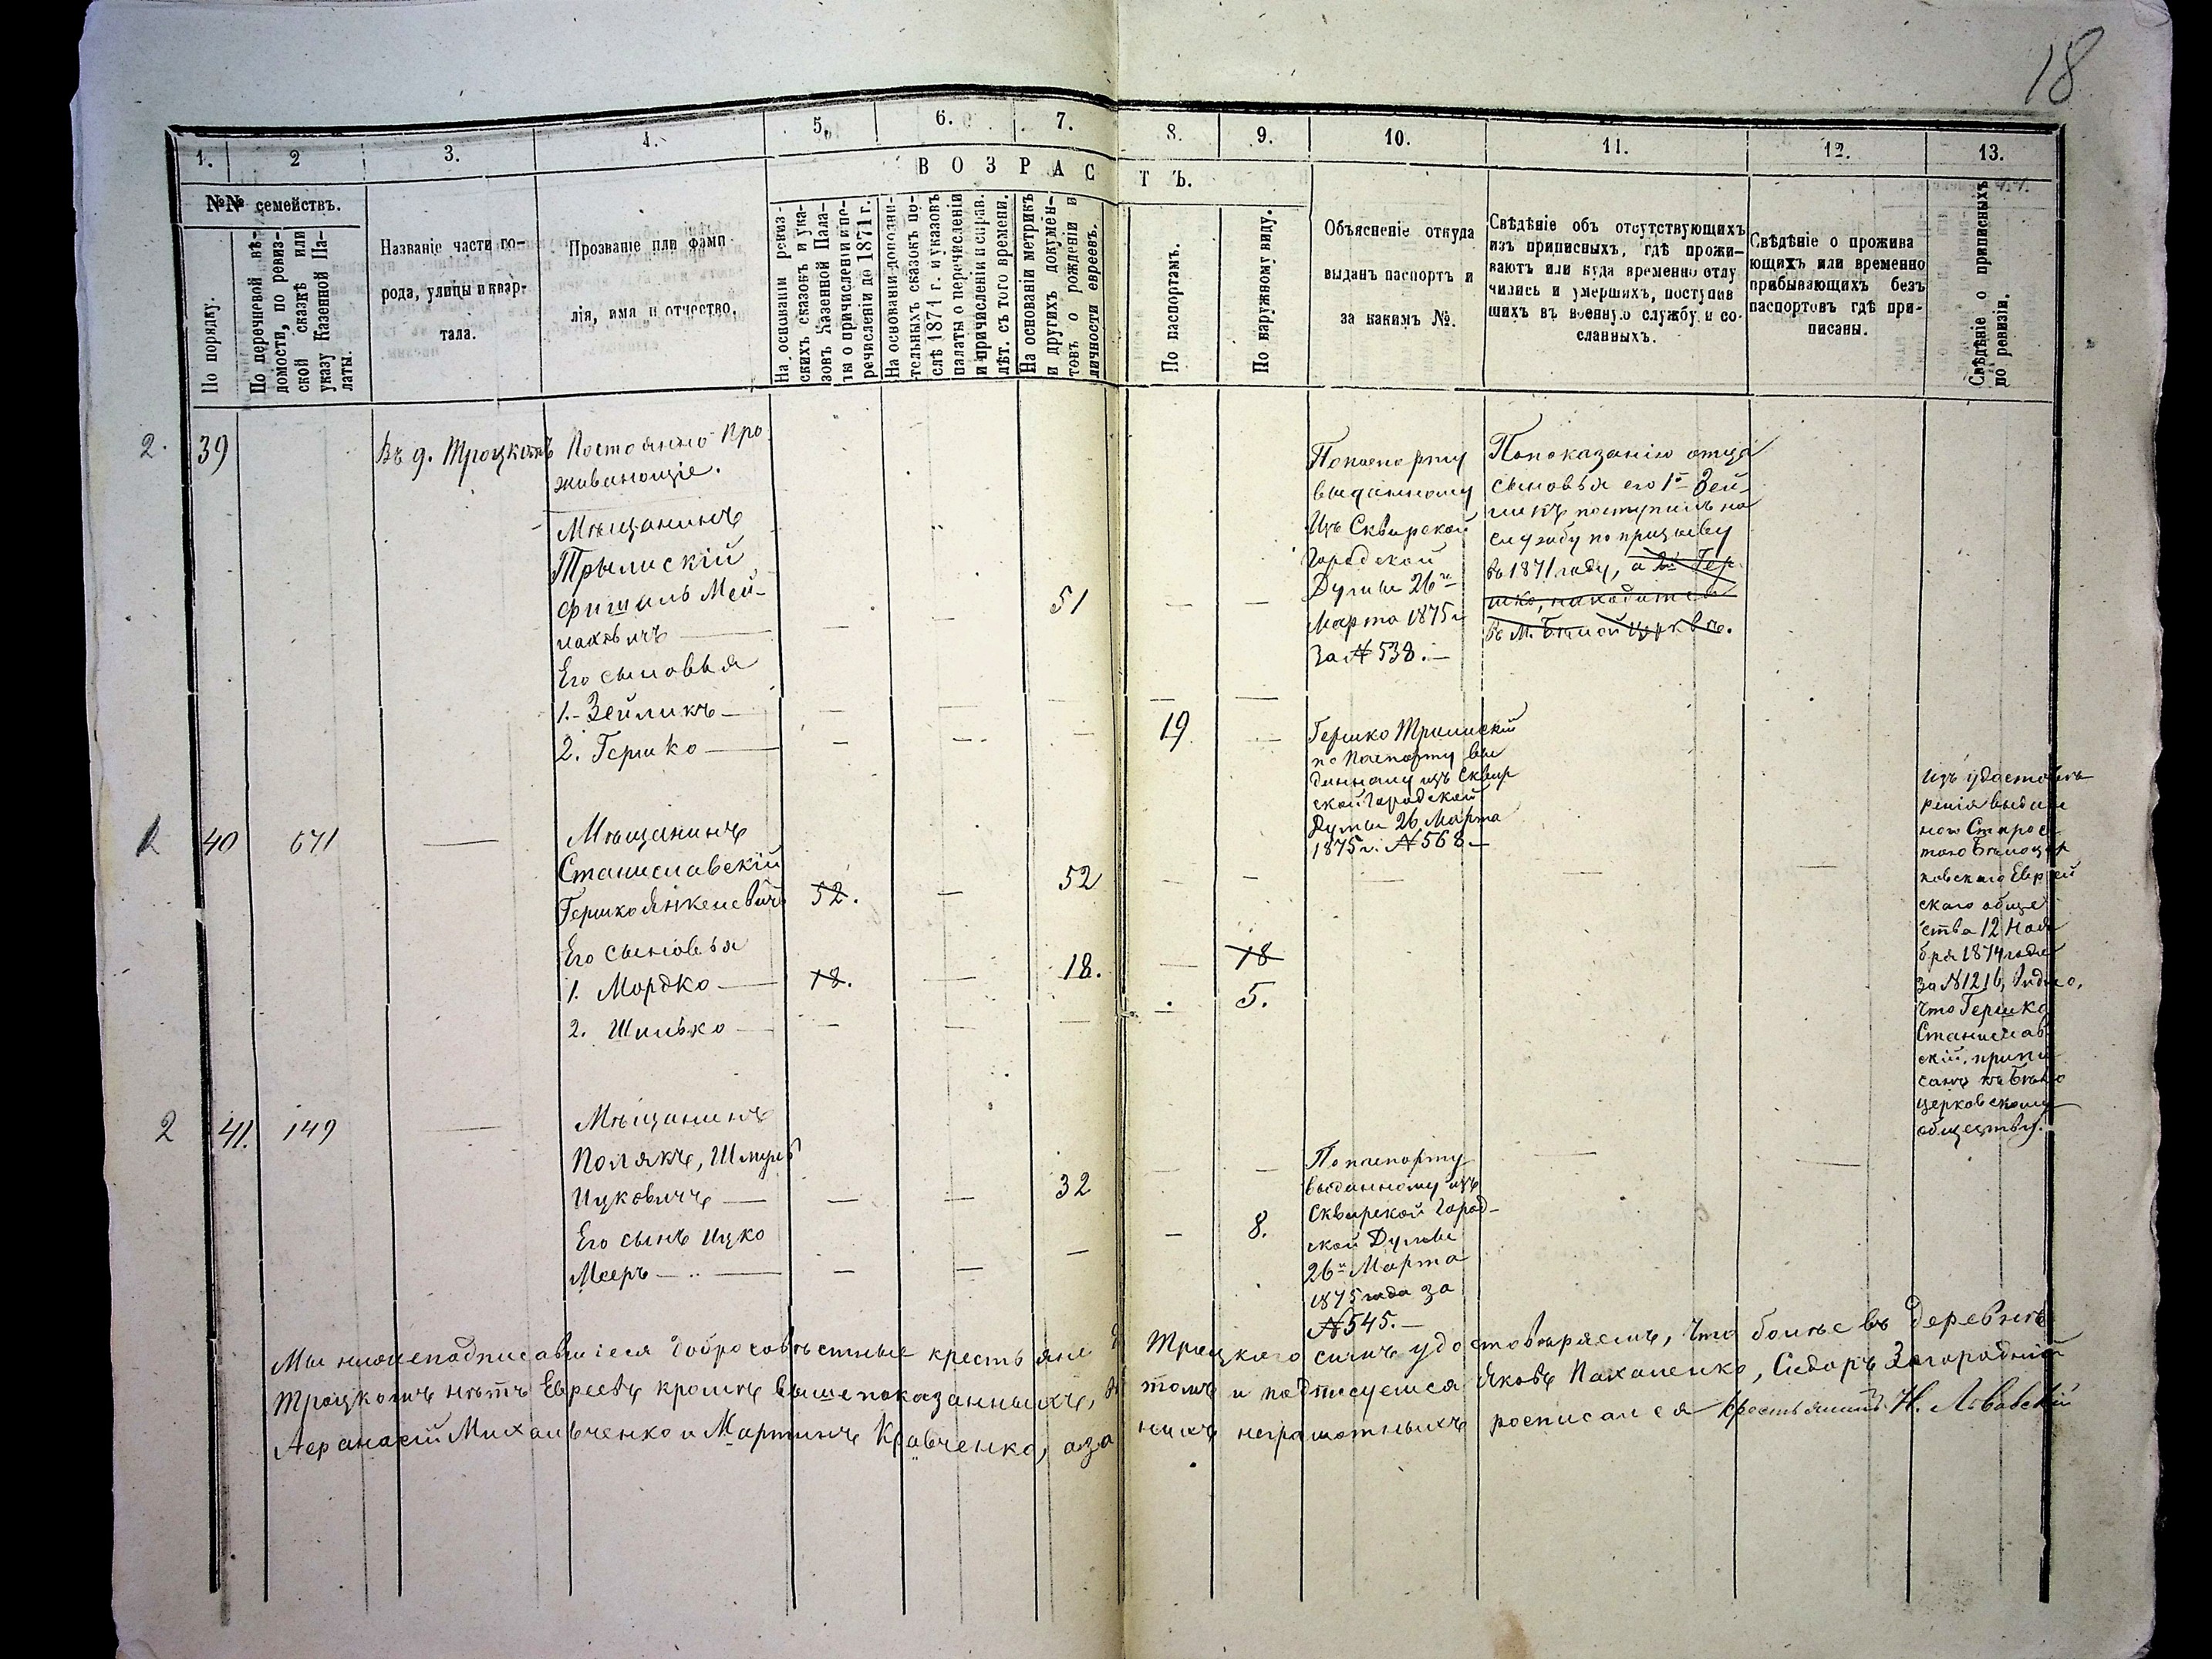 18
1.
2
3.
4.
5.
6.
7.
8.
9.
10.
11.
12.
13.
ВОЗРАСТЪ.
№№ семействъ.
По порядку.
По перечневой вѣ-
домости, по ревиз-
ской сказкѣ или
указу Казенной Па-
латы.
Названіе части го-
рода, улицы и квар-
тала.
Прозваніе или фами
лія, имя и отчество.
На основаніи ревиз-
скихъ сказокъ и ука-
зовъ Казенной Пала-
ты о причисленіи и пе-
речисленіи до 1871 г.
На основаніи дополни-
тельныхъ сказокъ по-
слѣ 1871 г. и указовъ
палаты о перечисленіи
и причисленіи и справ.
лѣт. съ того времени.
На основаніи метрикъ
и другихъ докумен-
товъ о рожденіи и
личности евреевъ.
По паспортамъ.
По наружному виду.
Объясненіе откуда
выданъ паспортъ и
за какимъ №.
Свѣдѣніе объ отсутствующихъ
изъ приписныхъ, гдѣ прожи-
ваютъ или куда временно отлу
чились и умершихъ, поступив
шихъ въ военную службу и со-
сланныхъ.
Свѣдѣніе о прожива
ющихъ или временно
прибывающихъ безъ
паспортовъ гдѣ при-
писаны.
Свѣдѣніе о приписныхъ
по ревизіи.
2.
39
Въ д. Троцкомъ
Постоянно про
живающіе.
Мѣщанинъ
Трылискій
Фишель Мей-
лаховичъ
51
Его сыновья
1.- Зейликъ
2. Гершко
19
Попаспорту
выданному
Изъ Сквирской
Городской
Думы 26го
Марта 1875 г
За № 538.
Гершко Трилискій
по Паспорту вы
данному изъ Сквир
ской Городской
Думы 26 Марта
1875 г. № 568
Попоказанію отца
сыновья его 1й Зей-
ликъ поступилъ на
службу по призыву
въ 1871 году, а 2й Гер
шко, находится
въ М. Бѣлой церквѣ.
1
40
671
Мѣщанинъ
Станиславскій
Гершко Янкелевичъ
52.
52
Его сыновья
1. Мордко
18.
18.
18
2. Шилько
5.
Изъ удостовѣ
ренія выдан
ного Старос
тою Бѣлоцер
ковскаго Еврей
скаго обще
ства 12 Нояб
бря 1874 года
за № 1216, видно,
что Гершко
Станислав
скій, припи
санъ къ Бѣло
церковскому
обществу.
2
41.
149
Мѣщанинъ
Полякъ, Шмуль
Ицковичъ
32
Его сынъ Ицко
Мееръ
8.
По паспорту
выданному изъ
Сквирской Город-
ской Думы
26го Марта
1875 года за
№ 545.
Мы нижеподписавшіеся добросовѣстные крестьяне д Троцкого симъ удостовѣряемъ, что болѣе въ деревнѣ
Троцкомъ нѣтъ Евреевъ кромѣ вышепоказанныхъ, въ томъ и подписуемся Яковъ Пахаленко, Сидоръ Загородній
Афанасій Михальченко и Мартинъ Кравченко, а за нихъ неграмотныхъ росписался крестьянинъ Н. Львовскій